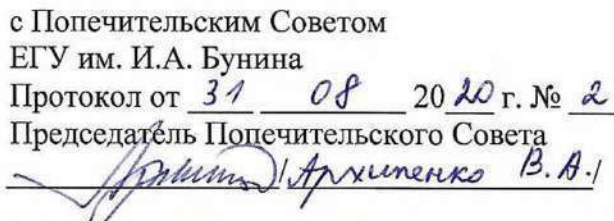 с Попечительским Советом
ЕГУ им. И.А. Бунина
Протокол от 31 08 2020 г. № 2
Председатель Попечительского Совета
/Архипенко В.А./